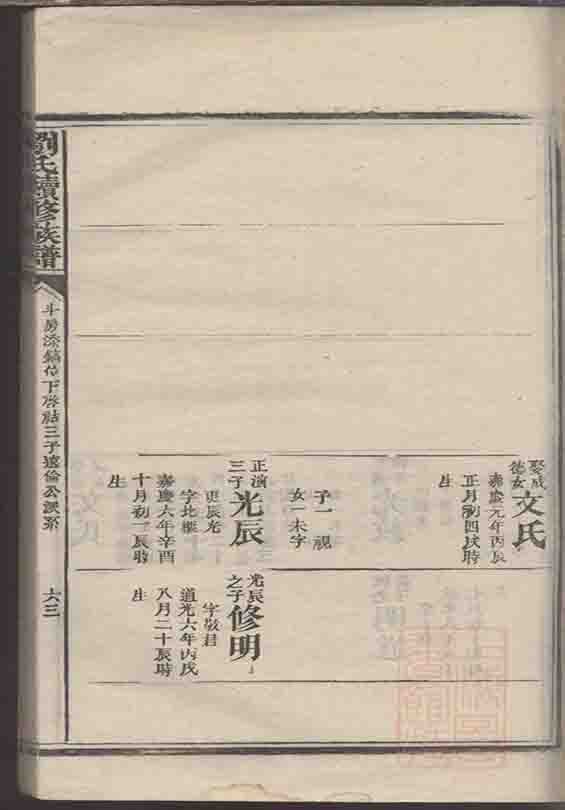 娶成
德女
文氏
嘉慶元年丙辰
正月初四戌時
生
子一 視
女一未字
正湳
三子
光辰
更辰光
字北樞
嘉慶六年辛酉
十月初一辰時
生
光辰
之子
修明
字敬君
道光六年丙戌
八月二十辰時
生
劉氏續修族譜
斗房添鎬位下啓喆三子遠倫公派系
六三